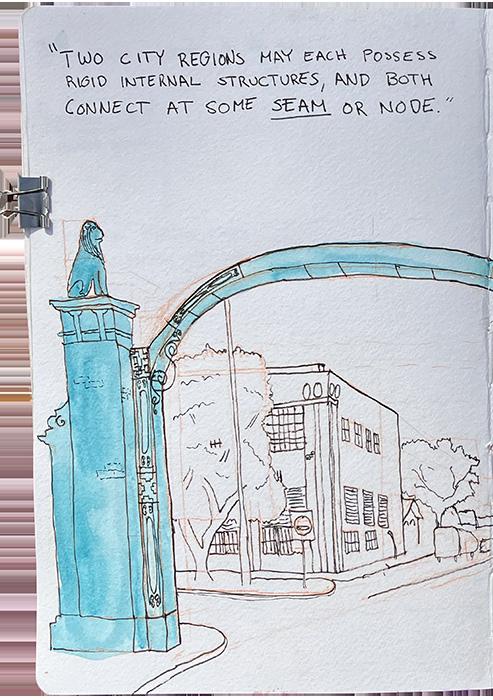 "TWO CITY REGIONS MAY EACH POSSESS
RIGID INTERNAL STRUCTURES, AND BOTH
CONNECT AT SOME SEAM OR NODE."